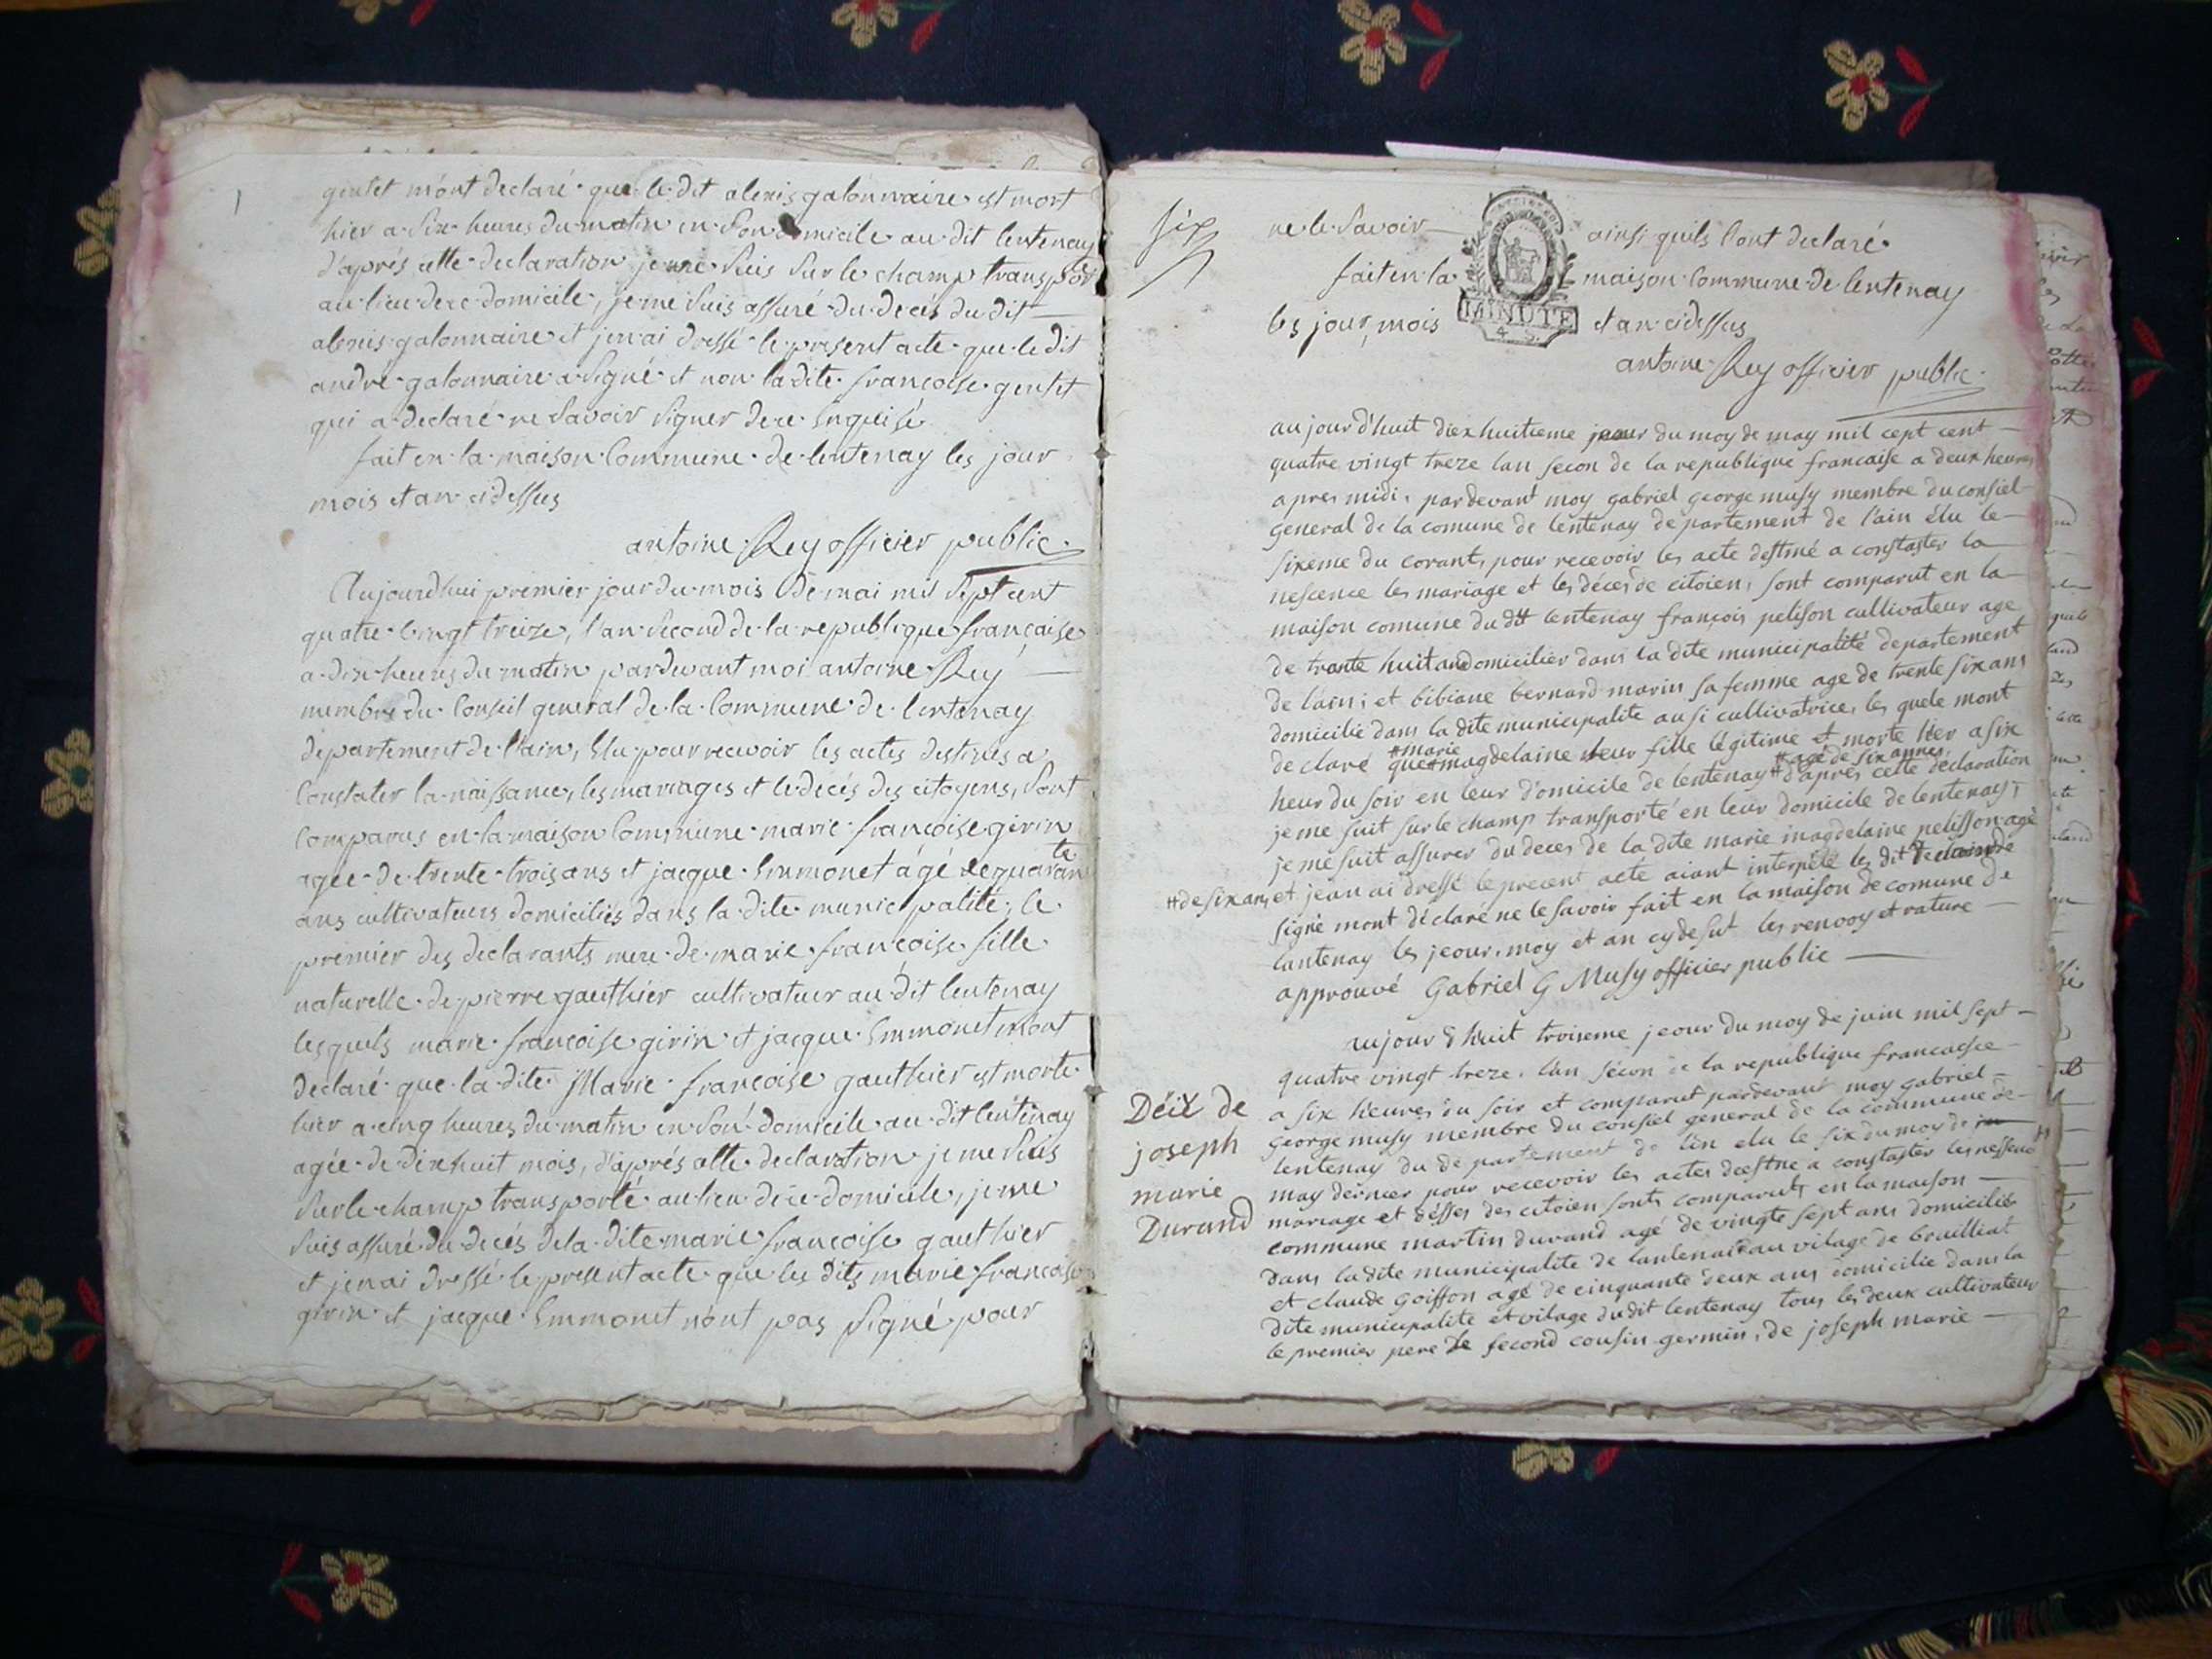 gentet m'ont declaré que le dit alexis galonnaire est mort
hier a six heures du matin en son domicile au dit lentenay
d'aprés cette declaration je me suis sur le champ transporté
au lieu de ce domicile, je me suis assuré du decés du dit
alexis galonnaire et j'en ai dressé le present acte que le dit
andré galonnaire a signé et non la dite francoise gentet
qui a declaré ne savoir signer de ce enquise
fait en la maison commune de lentenay les jour
mois et an cidessus
antoine Rey officier public
Aujourdhui premier jour du mois de mai mil sept cent
quatre vingt treize, l'an second de la republique française
a dix heures du matin pardevant moi antoine Rey
membre du conseil general de la commune de lentenay
departement de l'ain, élu pour recevoir les actes destinés a
constater la naissance, les mariages et le decés des citoyens, sont
comparus en la maison commune marie françoise girin
agée de trente trois ans et jacque Emmonet âgé de quarante
ans cultivateurs domiciliés dans la dite municipalité, le
premier des declarants mere de marie françoise fille
naturelle de pierre gauthier cultivateur au dit lentenay
lesquels marie françoise girin et jacque Emmonet m'ont
declaré que la dite Marie françoise gauthier est morte
hier a cinq heures du matin en son domicile au dit lentenay
agée de dix huit mois, d'aprés cette declaration je me suis
sur le champ transporté au lieu de ce domicile, je me
suis assuré du decés de la dite marie françoise gauthier
et j'en ai dressé le present acte que les dits marie francoise
girin et jacque Emmonet n'ont pas signé pour
six
ne le savoir ainsi quils l'ont declaré
fait en la maison commune de lentenay
les jour, mois et an cidessus
MINUTE
antoine Rey officier public
aujour d'huit diexhuitieme jour du moy de may mil cept cent
quatre vingt treze lan secon de la republique francaise a deux heures
apres midi, pardevant moy gabriel george musy membre du consiel
general de la comune de lentenay departement de l'ain élu le
sixeme du corant, pour recevoir les acte destiné a constaster la
nescence les mariage et les déces de citoien, sont comparut en la
maison comune du dit lentenay françois pelison cultivateur age
de trante huit an domicilier dans la dite municipalité departement
de lain; et bibiane bernard marin sa femme age de trente six ans
domicilié dans la dite municipalite ausi cultivatrice, les quele mont
#marie
declaré que #magdelaine leur fille légitime et morte hier a six
#agé de six annes
heur du soir en leur d'omicile de lentenay # d'apres cette declaration
je me suit sur le champ transporté en leur domicile de lentenay,
je me suit assurer du deces de la dite marie magdelaine pelisson agé
#de six ans, et jean ai dressé le precent acte aiant interpélé les dit de
signé mont déclaré ne le savoir fait en la maison de comune de
lantenay les jeour, moy et an cydesut les renvoy et rature
approuvé Gabriel G Musy officier public
aujour d huit troiseme jeour du moy de juin mil sept
quatre vingt treze, l'an sécon de la republique francaise
a six heures du soir et comparut pardevant moy gabriel
george musy membre du consiel general de la commune de
lentenay du departement de l'in elu le six du moy de
may dernier pour recevoir les actes destiné a constaster les nessence
mariage et désses des citoien sonts comparuts en la maison
commune martin durand agé de vingte sept ans domicilier
dans ladite municipalite de lantenai au vilage de brailliat
et claude goiffon agé de cinquante deux ans domicilié dans la
dite municipalite et vilage dudit lentenay tous les deux cultivateur
le premier pere le second cousin germin, de joseph marie
Déix de
joseph
marie
Durand